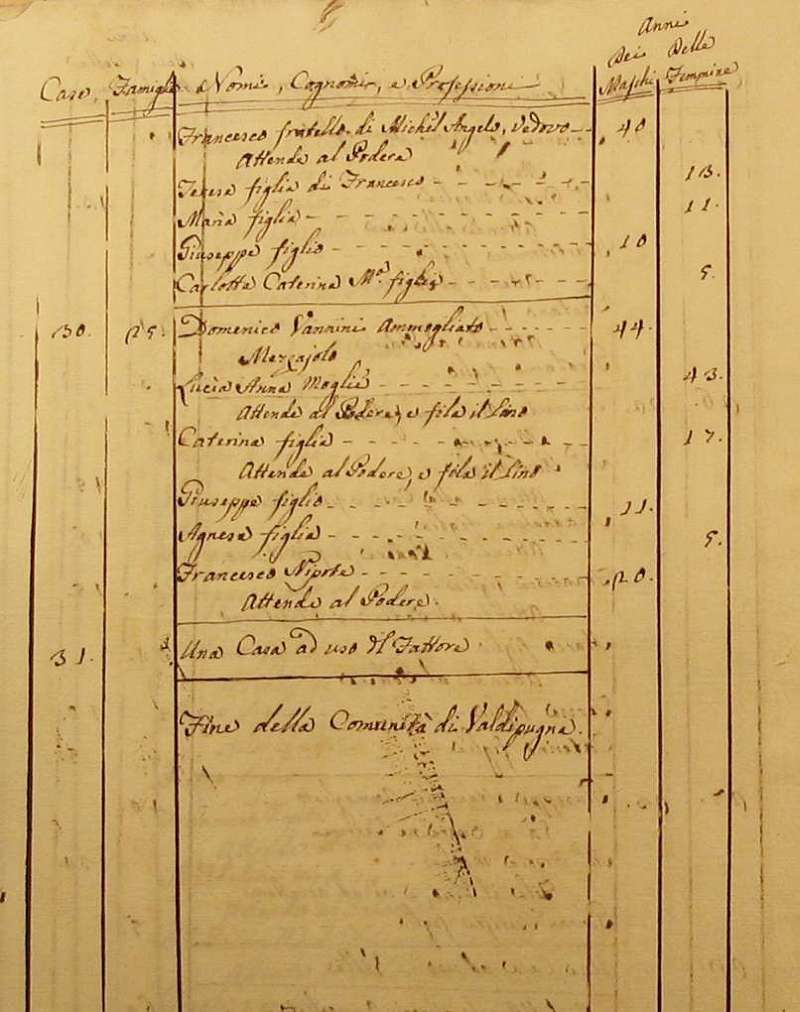 Anni
Dei Delle
Case Famiglie Nomi, Cognomi, e Professioni Maschi Femmine
Francesco fratello di Michel Angelo, Vedovo 40
Attende al Podere
Teresa figlia di Francesco 13.
Maria figlia 11.
Giuseppe figlio 10
Carlotta Caterina Mª figlia 5.
30. 25. Domenico Vannini Ammogliato 44.
Mezzajolo
Lucia Anna Moglie 43.
Attende al Podere, e fila il Lino
Caterina figlia 17.
Attende al Podere, e fila il Lino
Giuseppe figlio 11.
Agnesa figlia 5.
Francesco Nipote 20.
Attende al Podere.
31. Una Casa ad uso del Fattore
Fine della Comunità di Valdipugna.